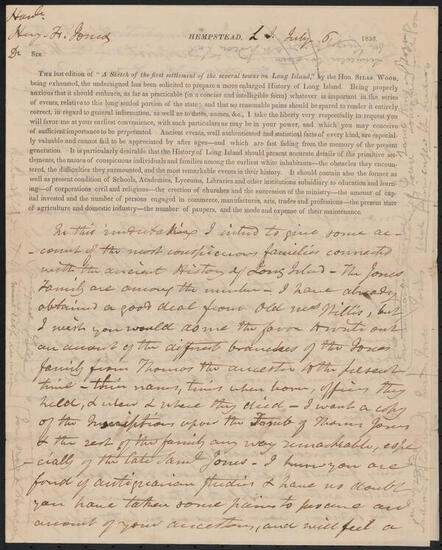 Honble
Hen. F. Jones
HEMPSTEAD, L I. July 6 1838.
Dr SIR
THE last edition of "A Sketch of the first settlement of the several towns on Long Island," by the HON. SILAS WOOD,
being exhausted, the undersigned has been solicited to prepare a more enlarged History of Long Island. Being properly
anxious that it should embrace, as far as practicable (in a concise and intelligible form) whatever is important in the series
of events, relative to this long settled portion of the state; and that no reasonable pains should be spared to render it entirely
correct, in regard to general information, as well as to dates, names, &c., I take the liberty very respectfully to request you
will favor me at your earliest convenience, with such particulars as may be in your power, and which you may conceive
of sufficient importance to be perpetuated. Ancient events, well authenticated and statistical facts of every kind, are especi-
ally valuable and cannot fail to be appreciated by after ages—and which are fast fading from the memory of the present
generation. It is particularly desirable that the History of Long Island should present accurate details of the primitive set-
tlements, the names of conspicuous individuals and families among the earliest white inhabitants—the obstacles they encoun-
tered, the difficulties they surmounted, and the most remarkable events in their history. It should contain also the former as
well as present condition of Schools, Academies, Lyceums, Libraries and other institutions subsidiary to education and learn-
ing—of corporations civil and religious—the erection of churches and the succession of the ministry—the amount of cap-
ital invested and the number of persons engaged in commerce, manufactures, arts, trades and professions—the present state
of agriculture and domestic industry—the number of paupers, and the mode and expense of their maintenance.
In this undertaking I intend to give some ac-
count of the most conspicuous families connected
with the ancient History of Long Island - The Jones
Family are among the number - I have already
obtained a good deal from Old Mrs Willis, but
I wish you would do me the favor to write out
an account of the different branches of the Jones
family from Thomas the ancestor to the present
time - their names, times when born, offices they
held, & when & where they died - I want a copy
of the Inscriptions upon the Tomb of Thomas Jones
& the rest of the family any way remarkable, espe-
cially of the late Saml Jones - I know you are
fond of antiquarian studies & have no doubt
you have taken some pains to procure an
account of your ancestors, and will feel a